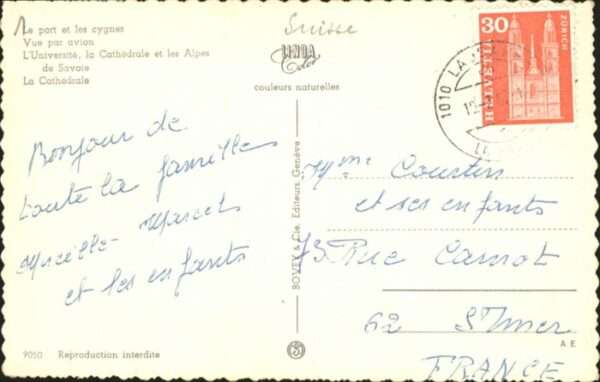 Le port et les cygnes
Vue par avion
L'Université, la Cathédrale et les Alpes
de Savoie
La Cathédrale
Suisse
LINDA
Color
couleurs naturelles
30
HELVETIA
ZÜRICH
1010 LA
Bonjour de
toute la famille
Marcel
Mireille
et les enfants
BOVEY & Cie. Editeurs, Genève
Mme Courtin
et ses enfants
73 Rue Carnot
62 St Omer
FRANCE
A E
9050 Reproduction interdite